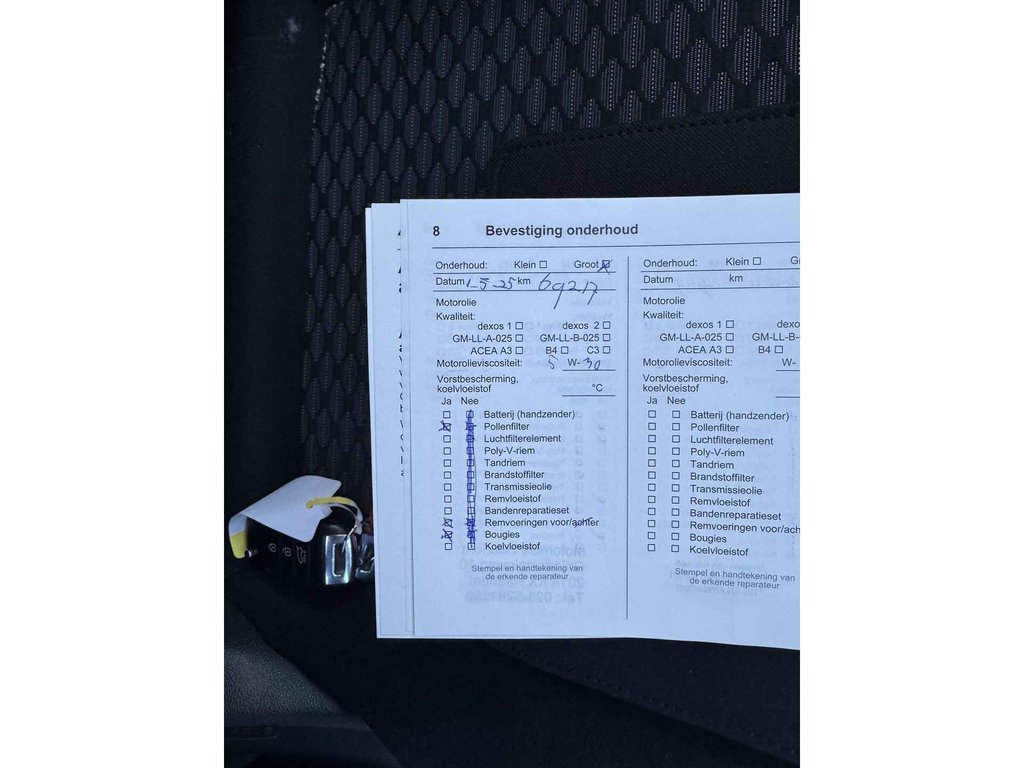 8 Bevestiging onderhoud
Onderhoud: Klein ☐ Groot ☒
Datum 1-5-25 km 69217
Motorolie
Kwaliteit:
dexos 1 ☐ dexos 2 ☐
GM-LL-A-025 ☐ GM-LL-B-025 ☐
ACEA A3 ☐ B4 ☐ C3 ☐
Motorolieviscositeit: 5 W- 30
Vorstbescherming,
koelvloeistof °C
Ja Nee
Batterij (handzender)
Pollenfilter
Luchtfilterelement
Poly-V-riem
Tandriem
Brandstoffilter
Transmissieolie
Remvloeistof
Bandenreparatieset
Remvoeringen voor/achter
Bougies
Koelvloeistof
Stempel en handtekening van
de erkende reparateur
Onderhoud: Klein ☐ G
Datum km
Motorolie
Kwaliteit:
dexos 1 ☐ dexo
GM-LL-A-025 ☐ GM-LL-B-
ACEA A3 ☐ B4 ☐
Motorolieviscositeit: W-
Vorstbescherming,
koelvloeistof
Ja Nee
Batterij (handzender)
Pollenfilter
Luchtfilterelement
Poly-V-riem
Tandriem
Brandstoffilter
Transmissieolie
Remvloeistof
Bandenreparatieset
Remvoeringen voor/ach
Bougies
Koelvloeistof
Stempel en handtekening van
de erkende reparateur